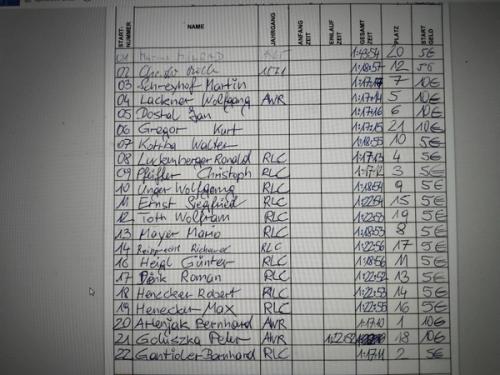 START- NUMMER NAME JAHRGANG ANFANGS ZEIT EINLAUF ZEIT GESAMT ZEIT PLATZ START GELD
01 1:43:54 20 5€
02 1971 1:18:57 12 5€
03 Schreyhof Martin 1:17:17 7 10€
04 Lackner Wolfgang AWR 1:17:14 5 10€
05 Dostal Jan 1:17:16 6 10€
06 Gregor Kurt 1:17:15 21 10€
07 Kotiba Walter 1:18:55 10 5€
08 Luxemberger Ronald RLC 1:17:13 4 5€
09 Pfeiffer Christoph RLC 1:17:12 3 5€
10 Unger Wolfgang RLC 1:18:54 9 5€
11 Ernst Siegfried RLC 1:22:54 15 5€
12 Toth Wolfram RLC 1:22:50 19 5€
13 Mayer Mario RLC 1:18:53 8 5€
14 Richard RLC 1:22:56 17 5€
16 Heigl Günter RLC 1:18:56 11 5€
17 Denk Roman RLC 1:22:52 13 5€
18 Henecker Robert RLC 1:22:53 14 5€
19 Henecker Max RLC 1:22:55 16 5€
20 Arlenjak Bernhard AWR 1:17:10 1 10€
21 Goluszka Peter AWR 18 10€
22 Gantioler Bernhard RLC 1:17:11 2 5€